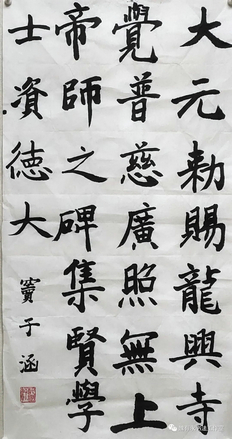 大元勅賜龍興寺
覺普慈廣照無上
帝師之碑集賢學
士資德大
竇于涵